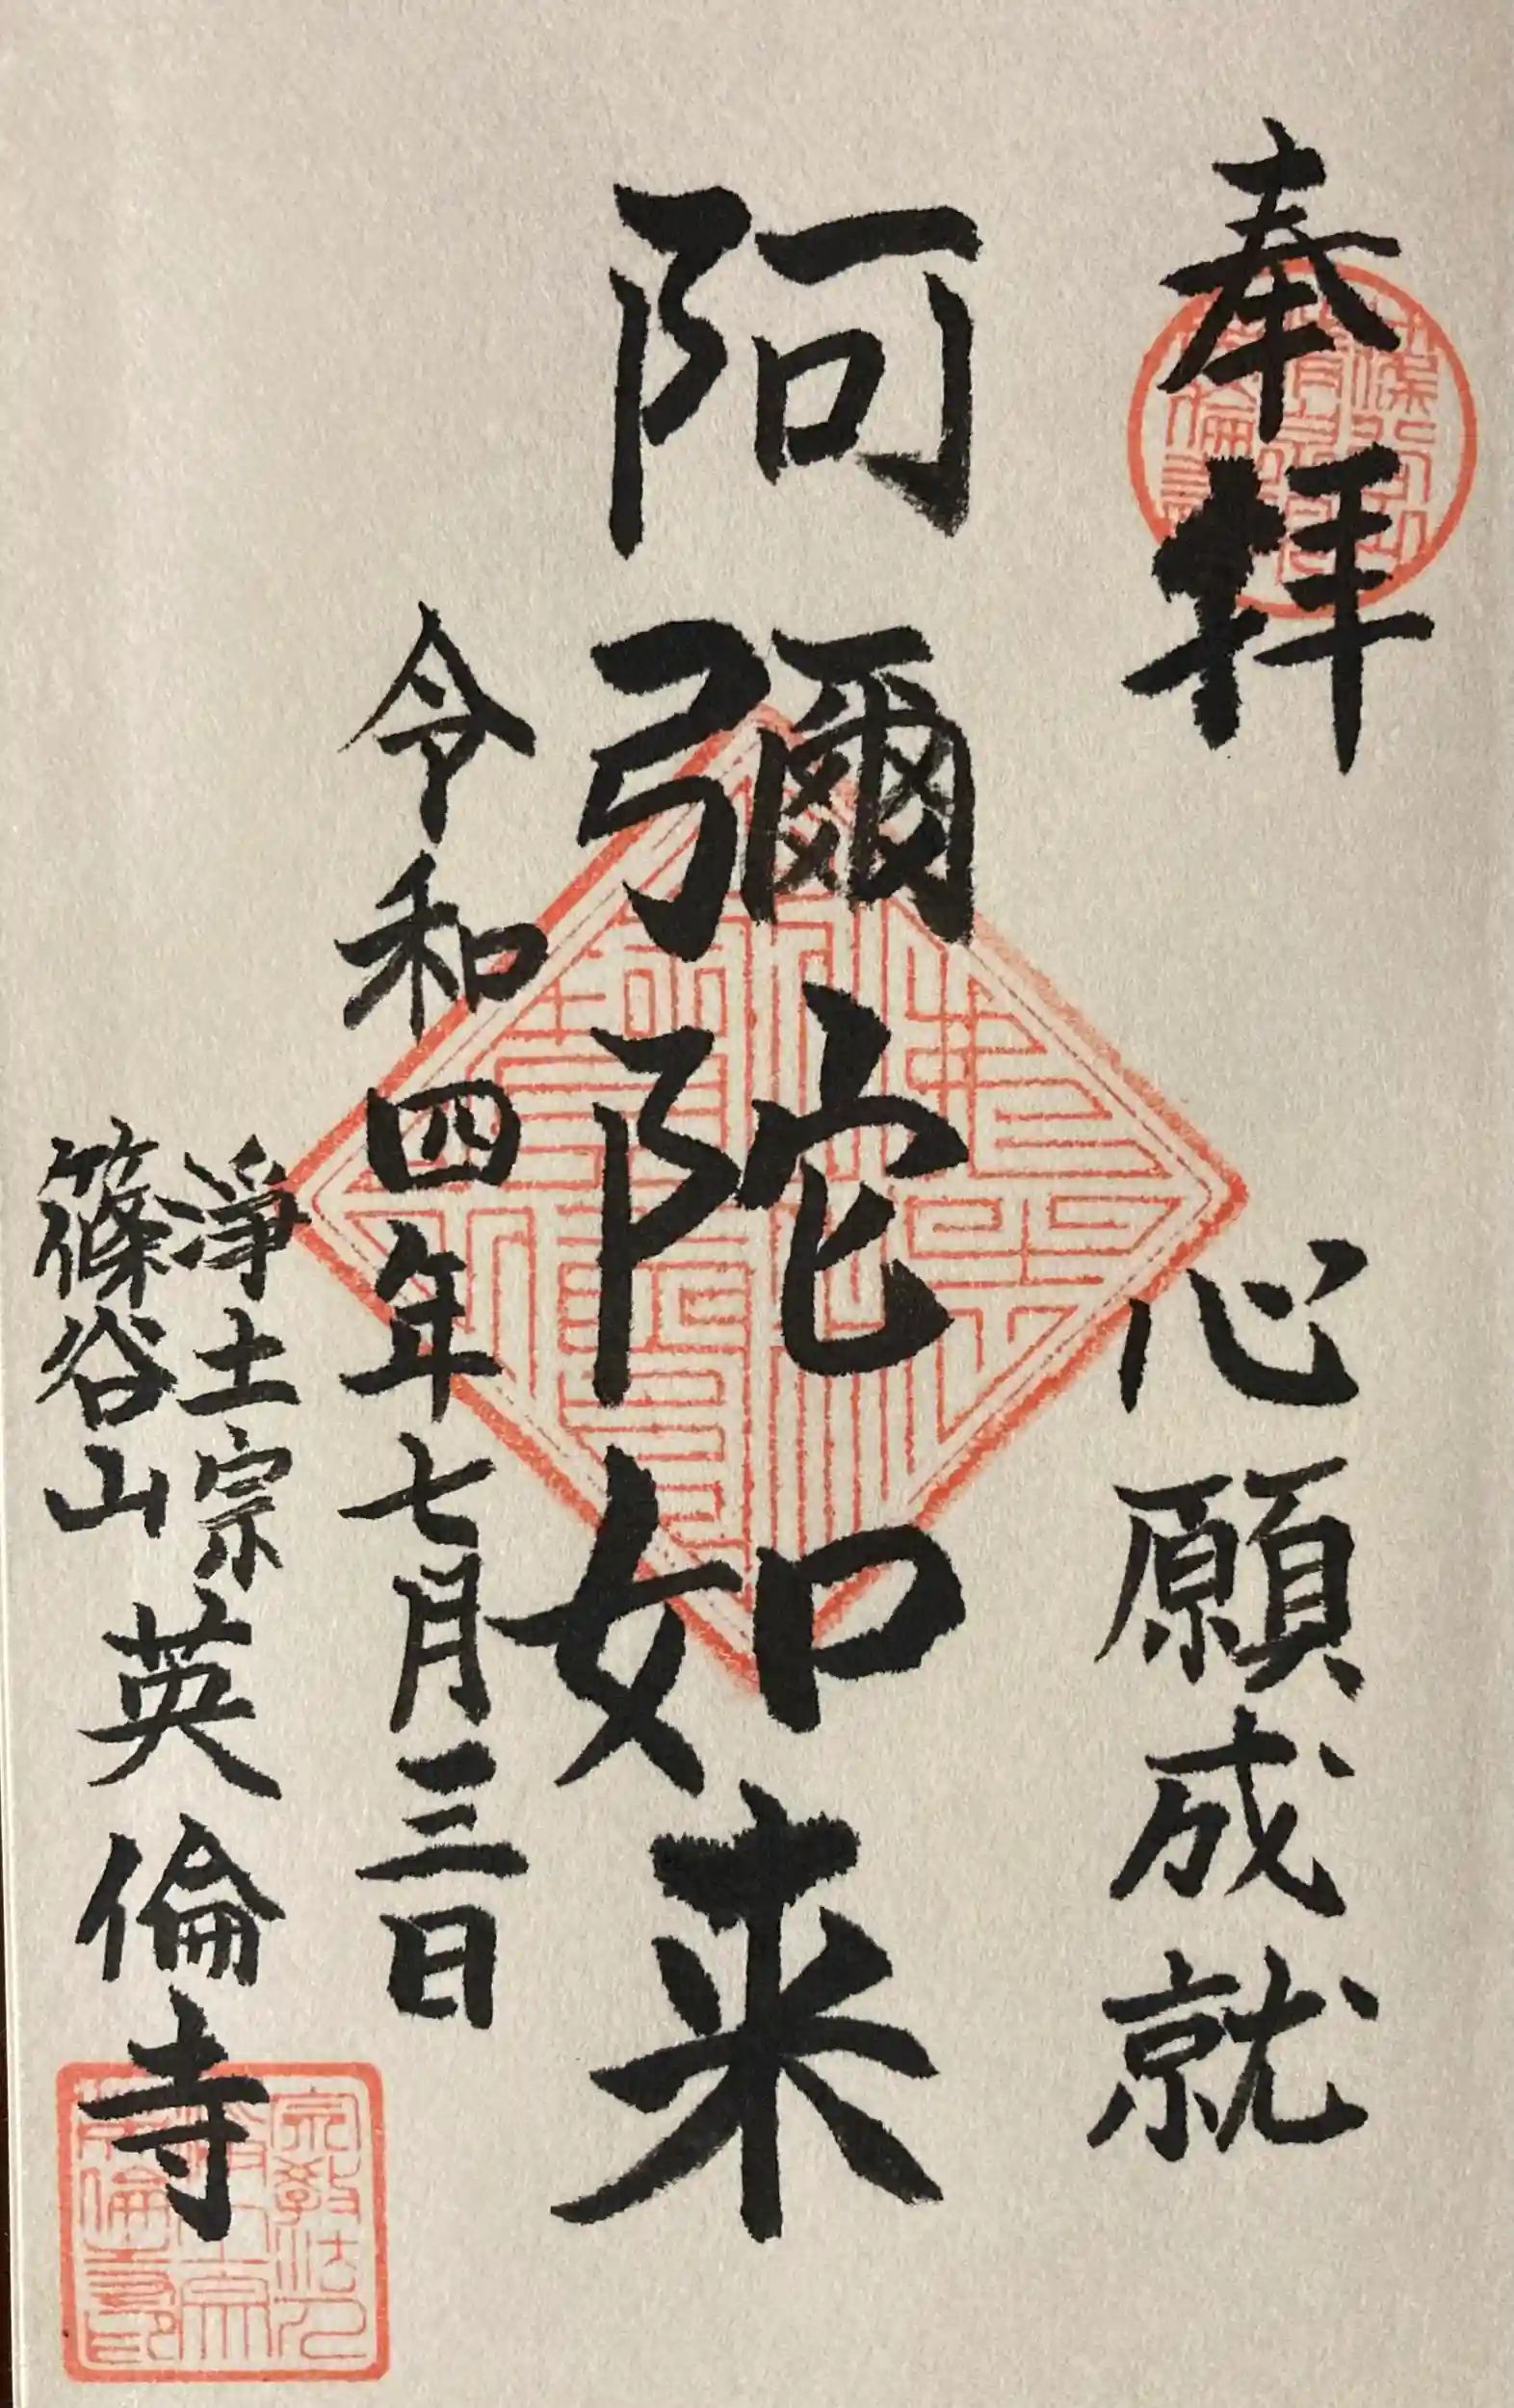 奉拝
心願成就
阿彌陀如来
令和四年七月三日
淨土宗
篠谷山
英倫寺